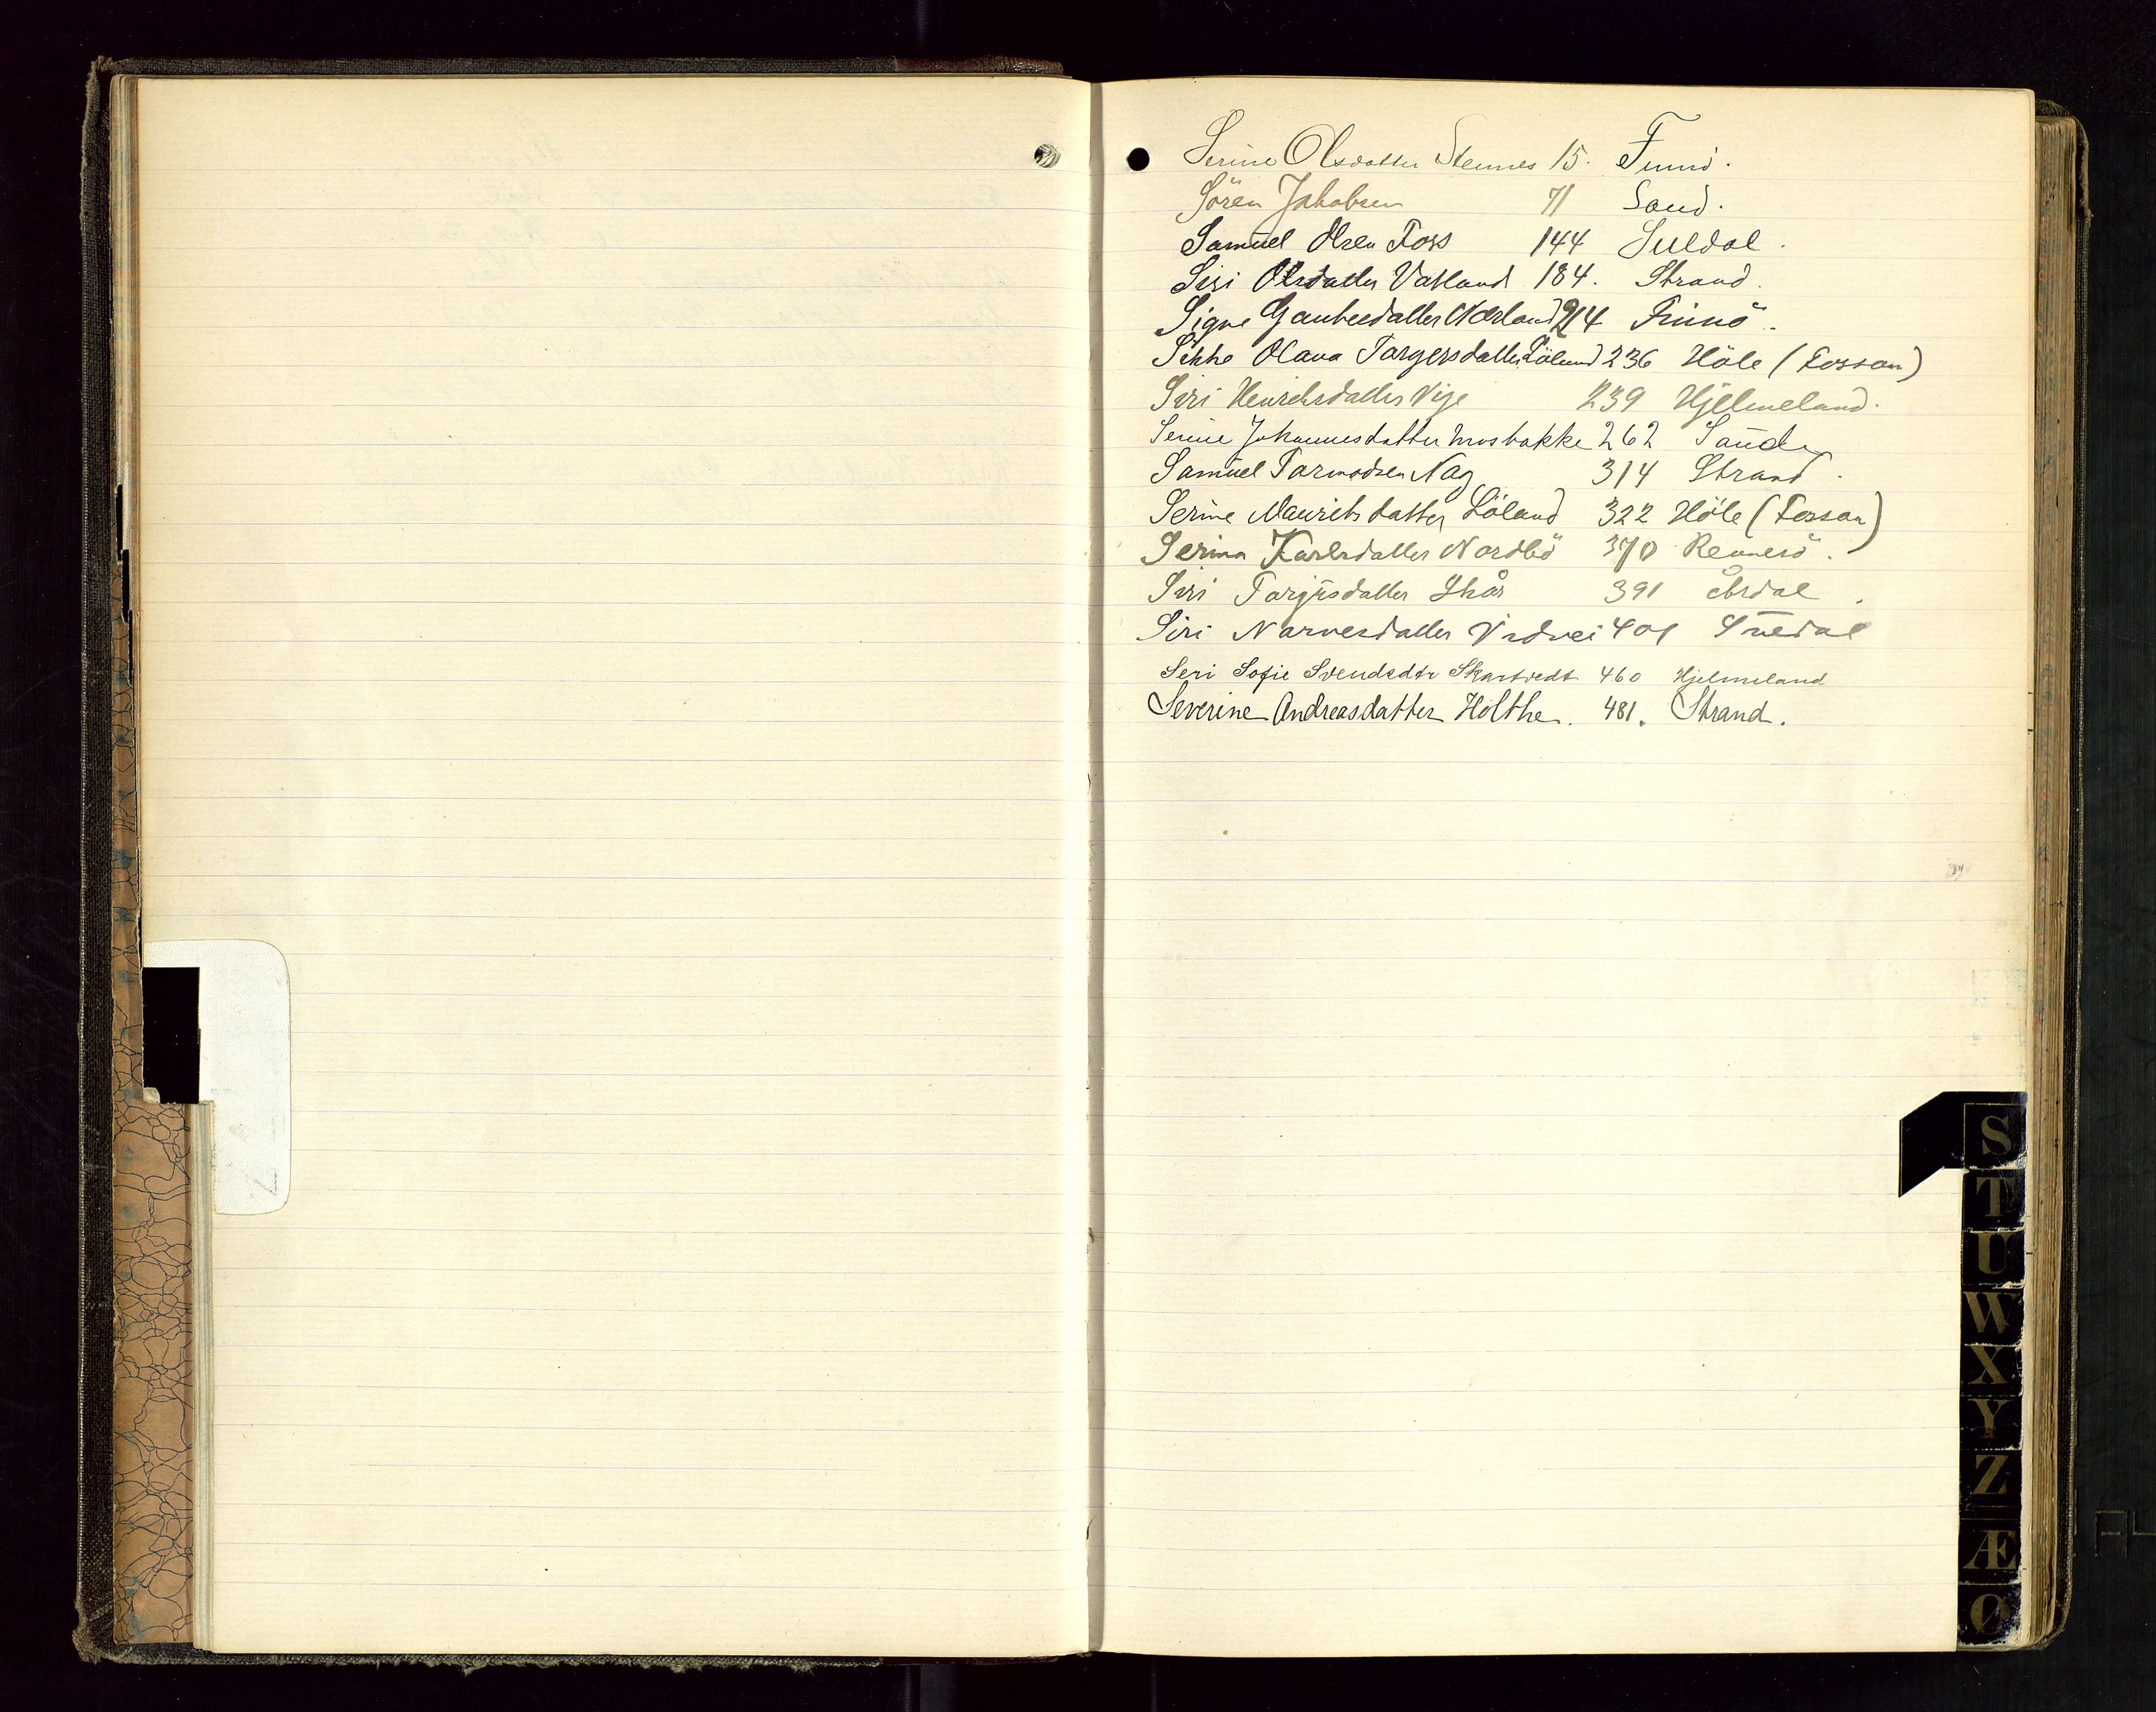 Serine Olsdatter Stennes 15. Finnö.
Sören Jakobsen 71 Sand.
Samuel Olsen Foss 144 Suldal.
Siri Olsdatter Vatland 184. Strand.
Signe Gautesdatter Nærland 214 Finnö.
Olava Torgersdatter Löland 236 Höle (Fossan)
Siri Henriksdatter Vige 239 Hjelmeland.
Serine Johannesdatter Mosbakke 262 Saude
Samuel Tormodsen Nag 314 Strand.
Serine Mauritsdatter Löland 322 Höle (Fossan)
Serina Karlsdatter Nordbö 370 Rennesö.
Siri Torjusdatter Skår 391 Årdal.
Siri Narvesdatter 401 Suldal
Seri Sofie Svendsdtr Skartvedt 460 Hjelmeland
Severine Andreasdatter Holthe. 481. Strand.
S
T
U
W
X
Y
Z
Æ
Ø